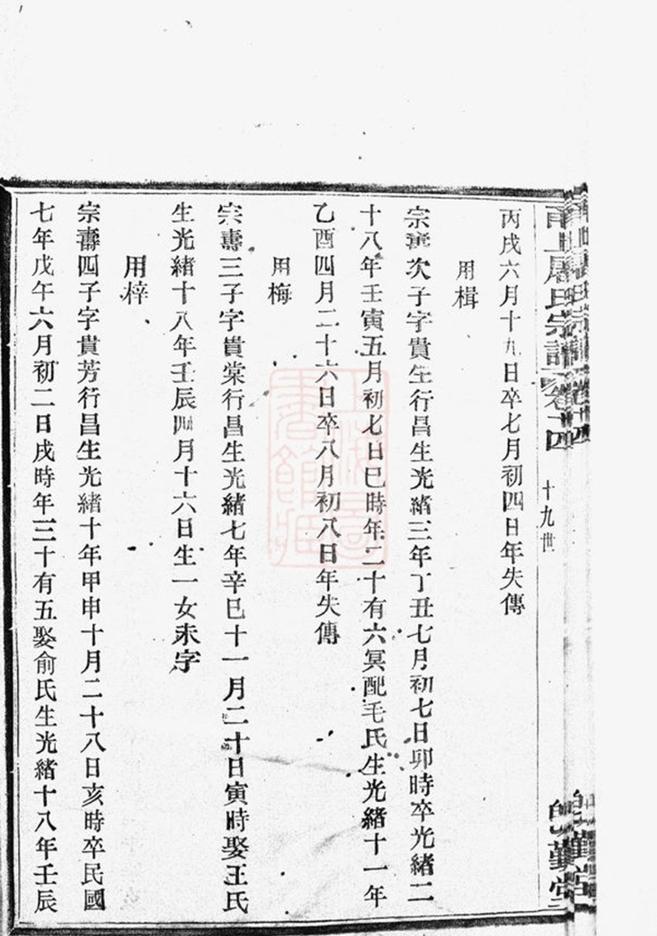 甬上屠氏宗譜 卷十四
十九世
丙戌六月十九日卒七月初四日年失傳
用楫
宗壽次子字貴生行昌生光緒三年丁丑七月初七日卯時卒光緒二
十八年壬寅五月初七日巳時年二十有六冥配毛氏生光緒十一年
乙酉四月二十六日卒八月初八日年失傳
用梅
宗壽三子字貴棠行昌生光緒七年辛巳十一月二十日寅時娶王氏
生光緒十八年壬辰四月十六日生一女未字
用梓
宗壽四子字貴芳行昌生光緒十年甲申十月二十八日亥時卒民國
七年戊午六月初二日戌時年三十有五娶俞氏生光緒十八年壬辰